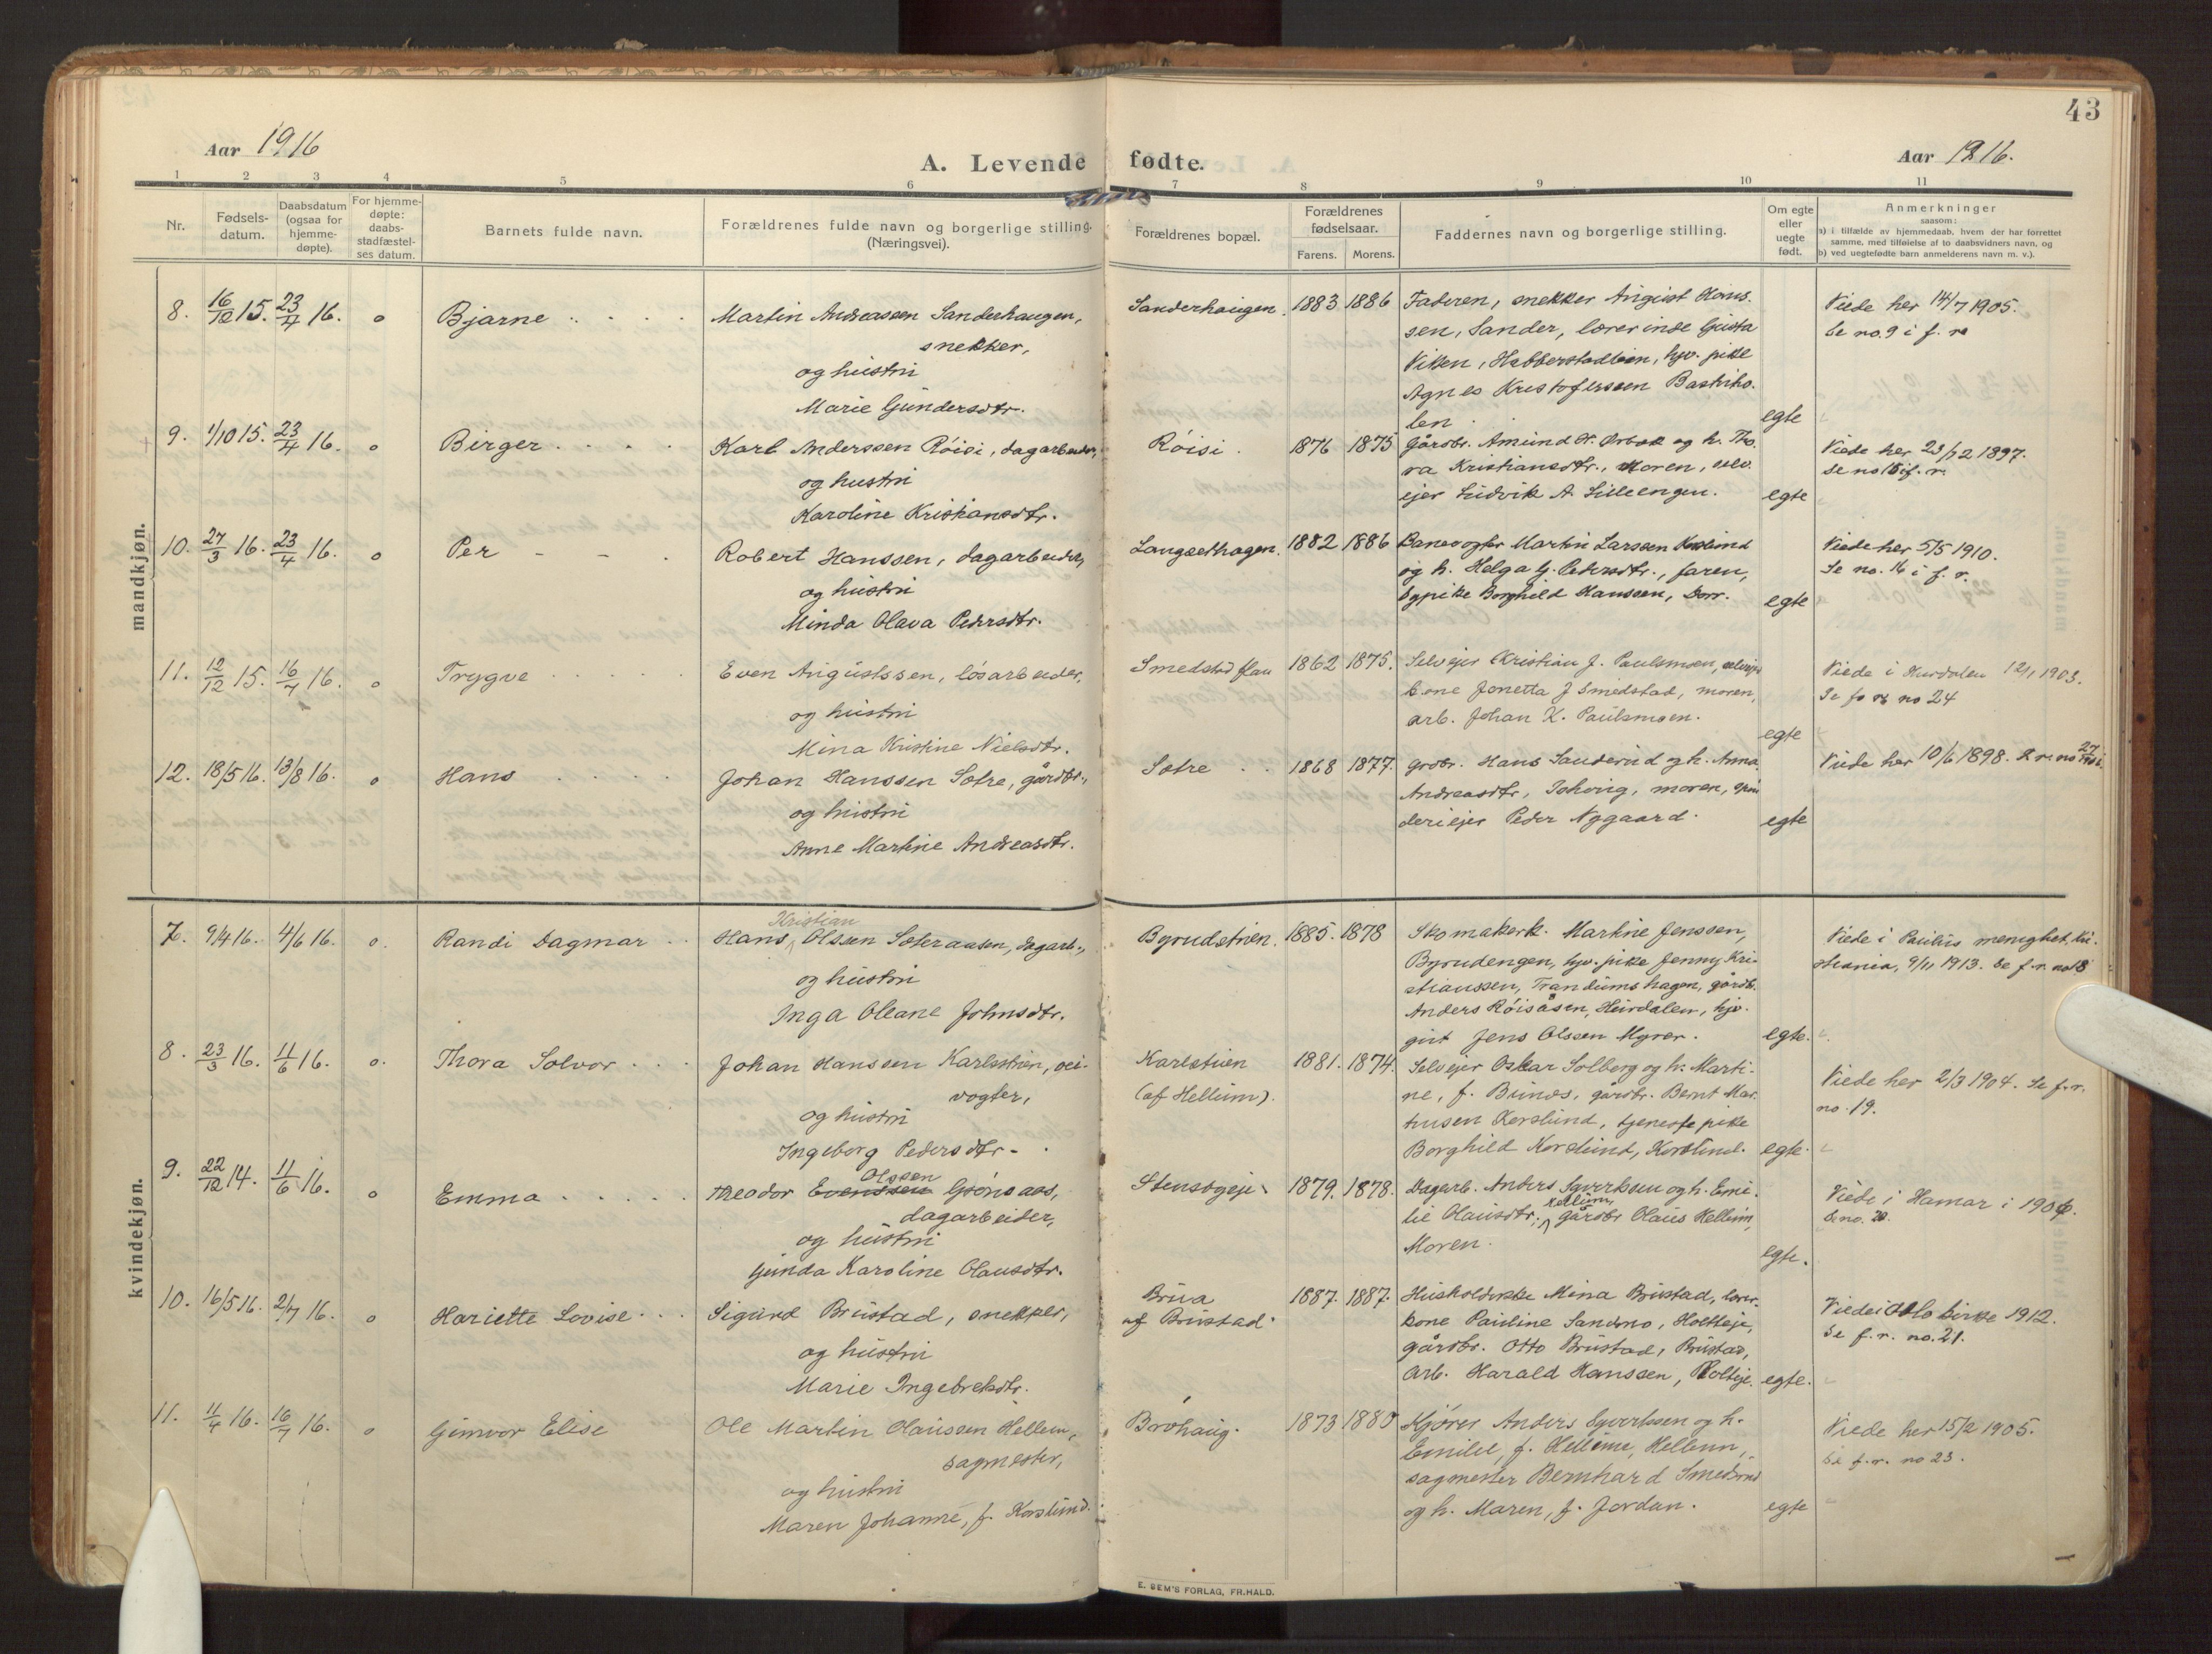 43
Aar 1916
A. Levende fødte.
Aar 1916.
1 2 3 4 5 6 7 8 9 10 11
Nr.
Fødsels-
datum.
Daabsdatum
(ogsaa for
hjemme-
døpte).
For hjemme-
døpte:
daabs-
stadfæstel-
ses datum.
Barnets fulde navn.
Forældrenes fulde navn og borgerlige stilling.
(Næringsvei).
Forældrenes bopæl.
Forældrenes
fødselsaar.
Farens. Morens.
Faddernes navn og borgerlige stilling.
Om egte
eller
uegte
født.
Anmerkninger
saasom:
a) i tilfælde av hjemmedaab, hvem der har forrettet
samme, med tilføielse af to daabsvidners navn, og
b) ved uegtefødte barn anmelderens navn m. v.).
mandkjøn.
8. 16/12 15. 23/4 16. o Bjarne
Martin Andreassen Sanderhaugen,
snekker,
og hustru
Marie Gundersdtr.
Sanderhaugen. 1883 1886
Faderen, snekker August Hans-
sen, Sander, lærerinde Gusta
Viken, Habberstadleien, hjv. pike
Agnes Kristofersen Basthho-
len
egte
Viede her 14/7 1905.
Se no. 9 i f. r.
9. 1/10 15. 23/4 16. o Birger
Karl Anderssen Röisi, dagarbeider,
og hustru
Karoline Kristiansdtr.
Röisi. 1876 1875
Gårdbr. Amund H. Ørbæk og h. Tho-
ra Kristiansdtr., Moren, selv
ejer Ludvik A. Lilleengen.
egte
Viede her 23/12 1897.
Se no 15 i f. r.
10. 27/3 16. 23/4 16. o Per
Robert Hanssen, dagarbeider,
og hustru
Minda Olava Pedersdtr.
Langsethagen. 1882 1886
Banevogter Martin Larssen Korslund
og h. Helga G. Pedersdtr., faren,
Sypike Borghild Hanssen, Dorr.
egte
Viede her 5/5 1910.
Se no. 16 i f. r.
11. 12/12 15. 16/7 16. o Trygve
Even Augustssen, løsarbeider,
og hustru
Mina Kristine Nielsdtr.
Smedstad flau 1862 1875.
Selvejer Kristian J. Paulsmoen, selvejer
kone Jonetta J Smedstad, moren,
arb. Johan K. Paulsmoen.
egte
Viede i Hurdalen 12/1 1903.
Se fo r no 24
12. 18/5 16. 13/8 16. o Hans
Johan Hanssen Sætre, gårdbr.,
og hustru
Anne Martine Andreasdtr.
Sætre 1868 1877.
grdbr. Hans Sanderud og h. Anna
Andreasdtr, Johvig, moren,
deriejer Peder Nygaard.
egte
Viede her 10/6 1898.
kvindekjøn.
7. 9/4 16. 4/6 16. o. Randi Dagmar
Kristian
Hans Olssen Sæteraasen, dagarb.,
og hustru
Inga Oleane Johnsdtr.
Byrudstuen. 1885. 1878
Skomakerk. Martine Jenssen,
Byrudengen, hjv. pike Jenny Kri-
stianssen, Trandumshagen, gårdb.
Anders Röisåsen, Hurdalen, hjv.
gut Jens Olssen Myrer.
egte.
Viede i Paulus menighet, Kri-
stiania, 9/11 1913. Se f. r. no 18
8. 23/3 16. 11/6 16. o. Thora Solvor
Johan Hanssen Karlstien, vei-
vogter,
og hustru
Ingeborg Pedersdtr.
Karlstien
(af Hellum). 1881. 1874.
Selvejer Oskar Solberg og h. Marti-
ne, f. Bunæs, gaardbr. Bernt Mar-
tinsen Korslund, tjenestepike
Borghild Korslund, Korslund.
egte.
Viede her 2/3 1904. Se f. r.
no. 19.
9. 22/12 14. 11/6 16. o Emma
Olssen
Theodor Evenssen Grönaas,
dagarbeider,
og hustru
Gunda Karoline Olausdtr.
Stensbyeje. 1879. 1878.
Dagarb. Anders Syverssen og h. Emi-
Hellum,
lie Olausdtr., gårdbr Olaus Hellum,
Moren.
egte.
Viede i Hamar i 1906.
Se no. 20.
10. 16/5 16. 2/7 16. o Hariette Lovise
Sigurd Brustad, snekker,
og hustru
Marie Ingebretsdtr.
Brua
af Brustad. 1887. 1887.
Husholderske Mina Brustad, lærer-
kone Pauline Sandmo, Holteje,
gårdbr. Otto Brustad, Brustad,
Arb. Harald Hanssen, Holteje.
egte.
Viede i Oslo kirke 1912.
Se f. r. no. 21.
11. 11/4 16. 16/7 16. o Gunvor Elise
Ole Martin Olaussen Hellum,
sagmester,
og hustru
Maren Johanne, f. Korslund.
Brohaug. 1873 1880
Kjörer Anders Syverssen og h.
Emilie, f. Hellum, Hellum,
sagmester Bernhard Smedsrud
og h. Maren, f. Jordan.
egte
Viede her 15/2 1905.
Se f. r. no 23.
E. SEM'S FORLAG, FR.HALD.